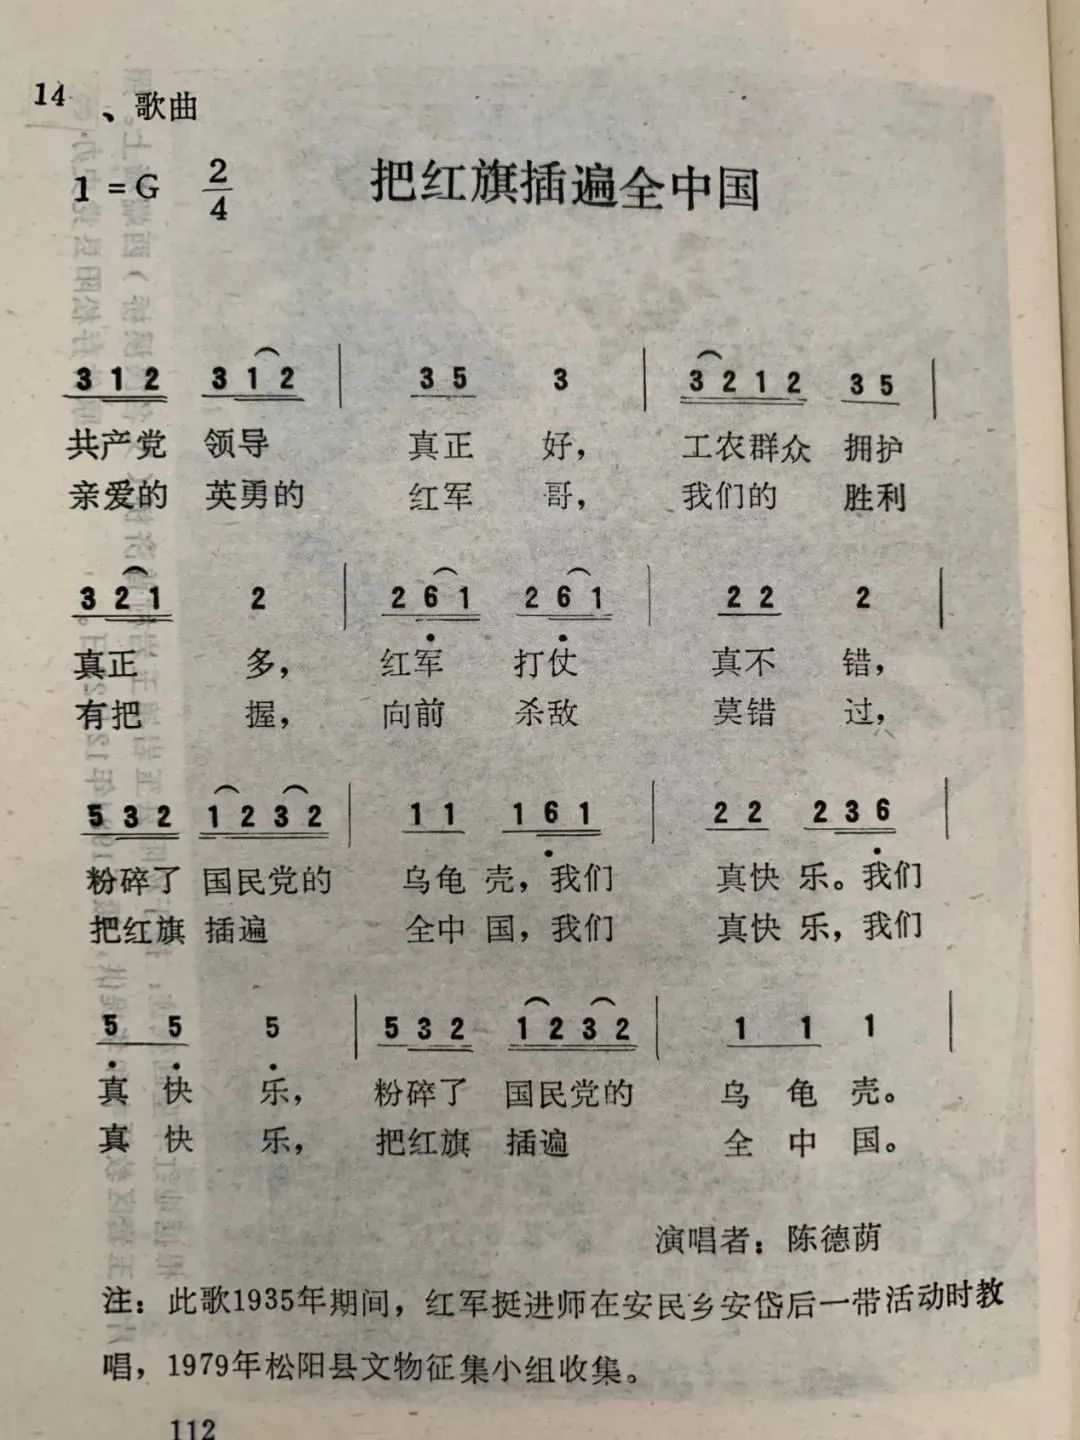 14、歌曲
1=G 2/4 把红旗插遍全中国
3 1 2 3 1 2 | 3 5 3 | 3 2 1 2 3 5 |
共产党 领导 真正 好， 工农群众 拥护
亲爱的 英勇的 红军 哥， 我们的 胜利
3 2 1 2 | 2 6 1 2 6 1 | 2 2 2 |
真正 多， 红军 打仗 真不 错，
有把 握， 向前 杀敌 莫错 过，
5 3 2 1 2 3 2 | 1 1 1 6 1 | 2 2 2 3 6 |
粉碎了 国民党的 乌龟 壳，我们 真快 乐。我们
把红旗 插遍 全中 国，我们 真快 乐，我们
5 5 5 | 5 3 2 1 2 3 2 | 1 1 1 |
真 快 乐， 粉碎了 国民党的 乌 龟 壳。
真 快 乐， 把红旗 插遍 全 中 国。
演唱者：陈德荫
注：此歌1935年期间，红军挺进师在安民乡安岱后一带活动时教
唱，1979年松阳县文物征集小组收集。
112